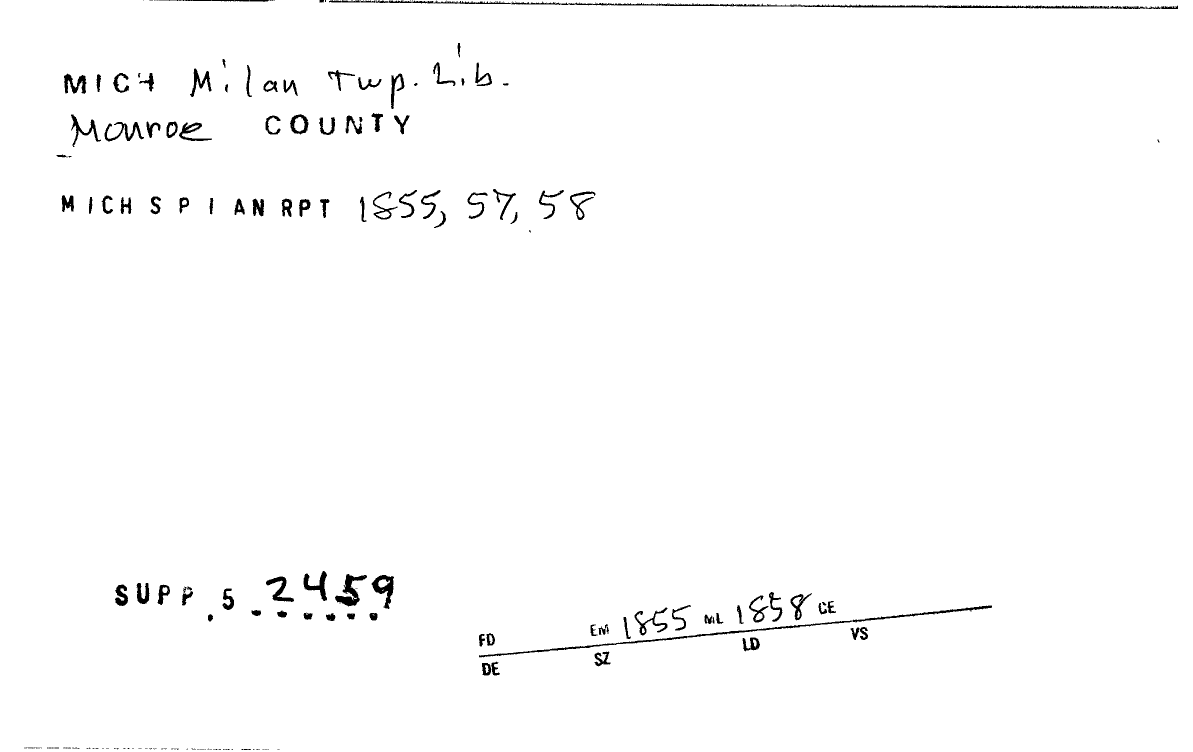 MICH Milan Twp. Lib.
Monroe COUNTY
MICH S P I AN RPT 1855, 57, 58
SUPP. 5 2459
FD EM 1855 ML 1858 CE
DE SZ LD VS